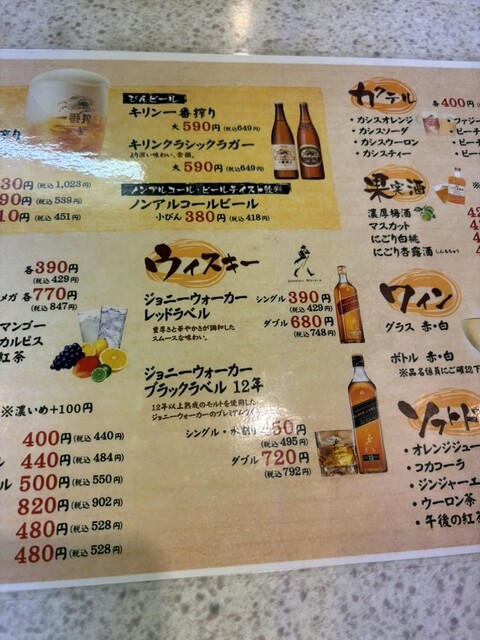 びんビール
キリン一番搾り
大 590円 (税込649円)
キリンクラシックラガー
より深い味わい、余韻。
大 590円 (税込649円)
ノンアルコール・ビールテイスト飲料
ノンアルコールビール
小びん 380円 (税込418円)
搾り
30円 (税込1,023円)
90円 (税込539円)
10円 (税込451円)
各390円
(税込429円)
メガ 各770円
(税込847円)
マンゴー
カルピス
紅茶
※濃いめ+100円
400円 (税込440円)
440円 (税込484円)
ル 500円 (税込550円)
820円 (税込902円)
480円 (税込528円)
480円 (税込528円)
ウィスキー
ジョニーウォーカー
レッドラベル
重厚さと華やかさが調和した
スムースな味わい。
シングル 390円
(税込429円)
ダブル 680円
(税込748円)
ジョニーウォーカー
ブラックラベル 12年
12年以上熟成のモルトを使用した
ジョニーウォーカーのプレミアム
シングル・水割り 450円
(税込495円)
ダブル 720円
(税込792円)
カクテル
各400円
・カシスオレンジ
・カシスソーダ
・カシスウーロン
・カシスティー
・ファジー
・ピーチ
・ピーチ
・ピ
果実酒
濃厚梅酒
マスカット
にごり白桃
にごり杏露酒(しんるちゅう)
ワイン
グラス 赤・白
ボトル 赤・白
※品名係員にご確認下
ソフトド
・オレンジジュー
・コカコーラ
・ジンジャーエ
・ウーロン茶
・午後の紅茶